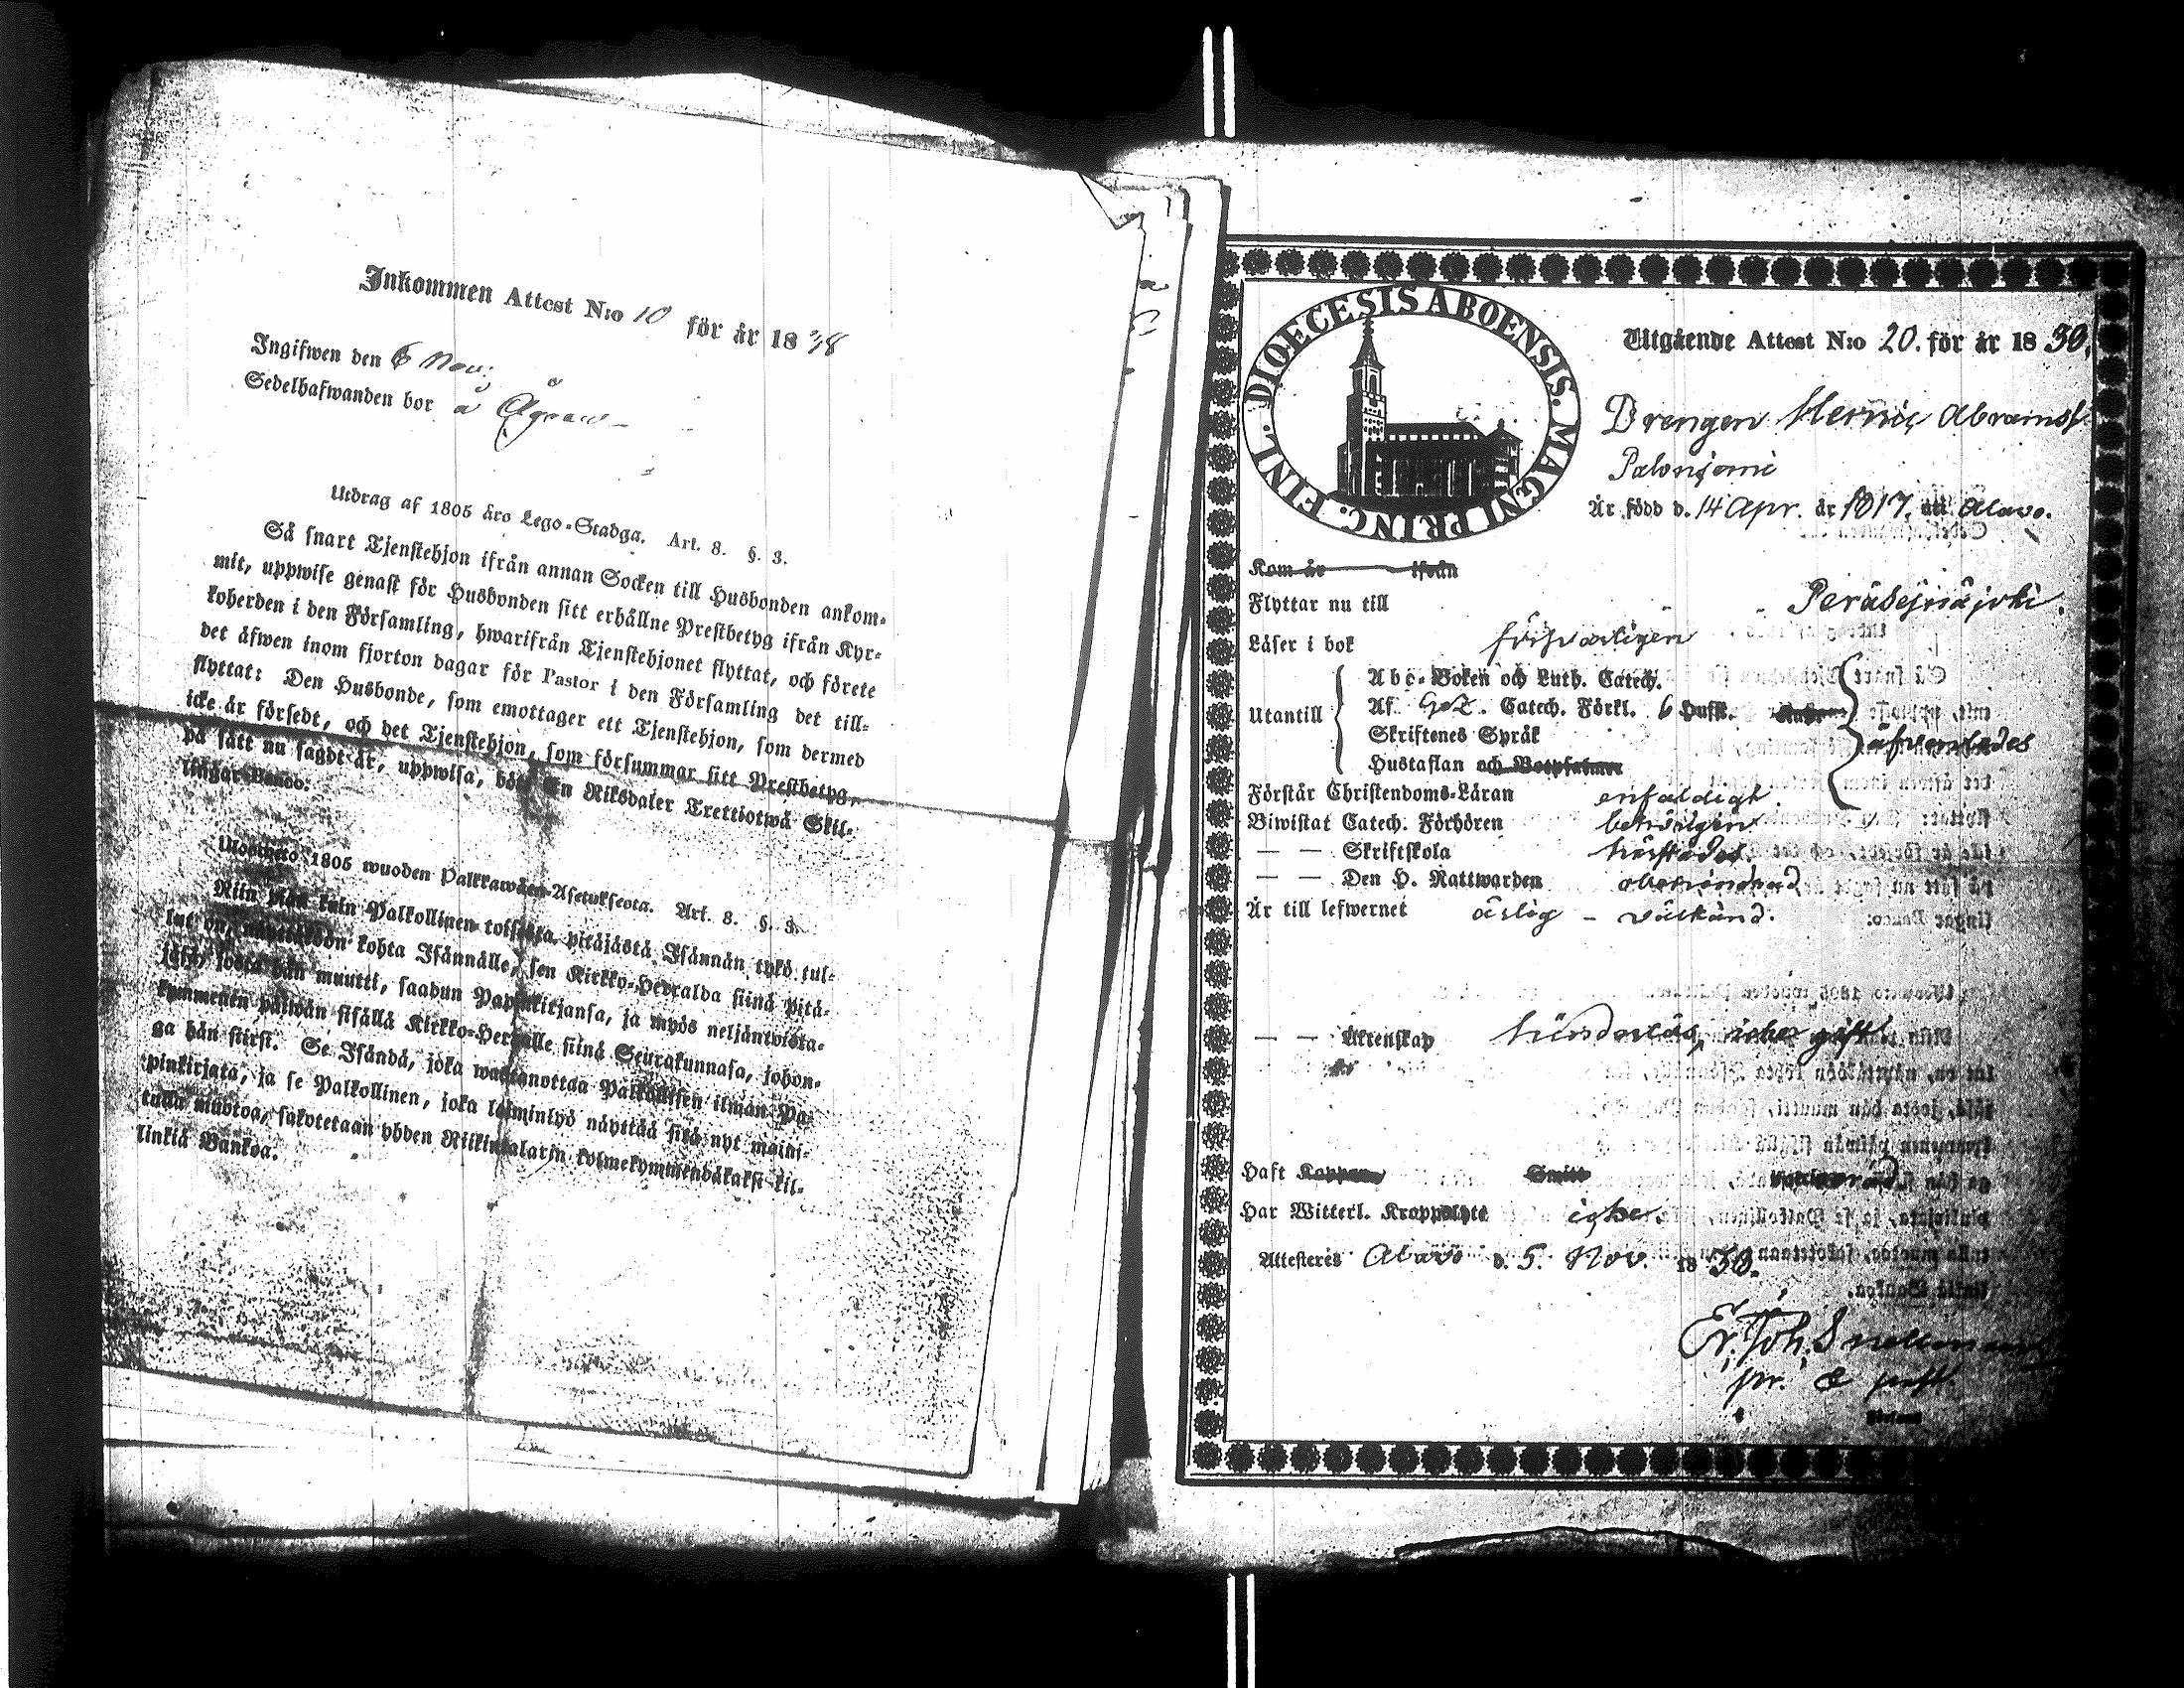 Inkommen Attest N:o 10 för år 18 38
Ingifwen den 6 Nov:
Sedelhafwanden bor å
Utdrag af 1805 års Lego-Stadga. Art. 8. §. 3.
Så snart Tjenstehjon ifrån annan Socken till Husbonden ankom-
mit, uppwise genast för Husbonden sitt erhållne Prestbetyg ifrån Kyr-
koherden i den Församling, hwarifrån Tjenstehjonet flyttat, och förete
det äfwen inom fjorton dagar för Pastor i den Församling det till-
flyttat: Den Husbonde, som emottager ett Tjenstehjon, som dermed
icke är försedt, och det Tjenstehjon, som försummar sitt Prestbetyg,
på sätt nu sagdt är, uppwisa, böte En Riksdaler Trettiotwå Skil-
lingar Banco.
Ulosweto 1805 wuoden Palkkawäen-Asetuksesta. Art. 8. §. 3.
Niin pian kuin Palkollinen toisesta pitäjästä Isännän tykö tul-
lut on, näyttäköön kohta Isännälle, sen Kirkko-Herralda siinä pitä-
jäsä, josta hän muutti, saadun Papinkirjansa, ja myös neljäntoista-
kymmenen päiwän sisällä Kirkko-Herralle siinä Seurakunnasa, johon-
ga hän siirsi. Se Isändä, joka wastanottaa Palkollisen ilman Pa-
pinkirjata, ja se Palkollinen, joka laiminlyö näyttää sitä nyt maini-
tulla muotoa, sakotetaan yhden Riikintalarin kolmekymmendäkaksi kil-
linkiä Bankoa.
DIOECESIS ABOENSIS. MAGNI PRINC. FINL.
Utgående Attest N:o 20. för år 18 38.
Drengen Henric Abramsf
Är född d. 14 Apr. år 1817. uti Alavo.
Kom år ifrån
Flyttar nu till Peräsejnäjoki.
Läser i bok försvarligen
Abc-Boken och Luth. Catech.
Utantill Af Catech. Förkl. 6 Hufst.
Skriftenes Språk äfvenledes
Hustaflan och Botpsalmer
Förstår Christendoms-Läran enfaldigt.
Biwistat Catech. Förhören behörigen
— — Skriftskola härstädes
— — Den H. Nattwarden
Är till lefwernet ärlig - välkänd.
— — Äktenskap hinderlös, icke gift
Haft Koppor Smitt
Har Witterl. Kroppslyte icke
Attesteres Alavo d. 5. Nov. 18 38.
Er. Joh. Snellman